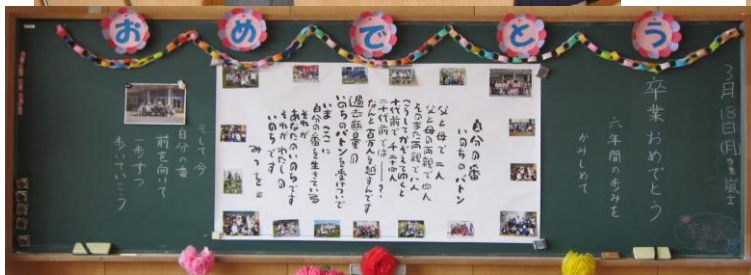 おめでとう
3月18日(月)
卒業おめでとう
六年間の歩みを
かみしめて
自分の番
いのちのバトン
父と母で二人
父と母の両親で四人
そのまた両親で八人
こうしてかぞえてゆくと
十代前で千二十四人
二十代前では―――?
なんと百万人を越すんです
過去無量の
いのちのバトンを受けついで
いまここに
自分の番を生きている
それが
あなたのいのちです
それがわたしの
いのちです
みつを
そして今
自分の番
前を向いて
一歩ずつ
歩いていこう